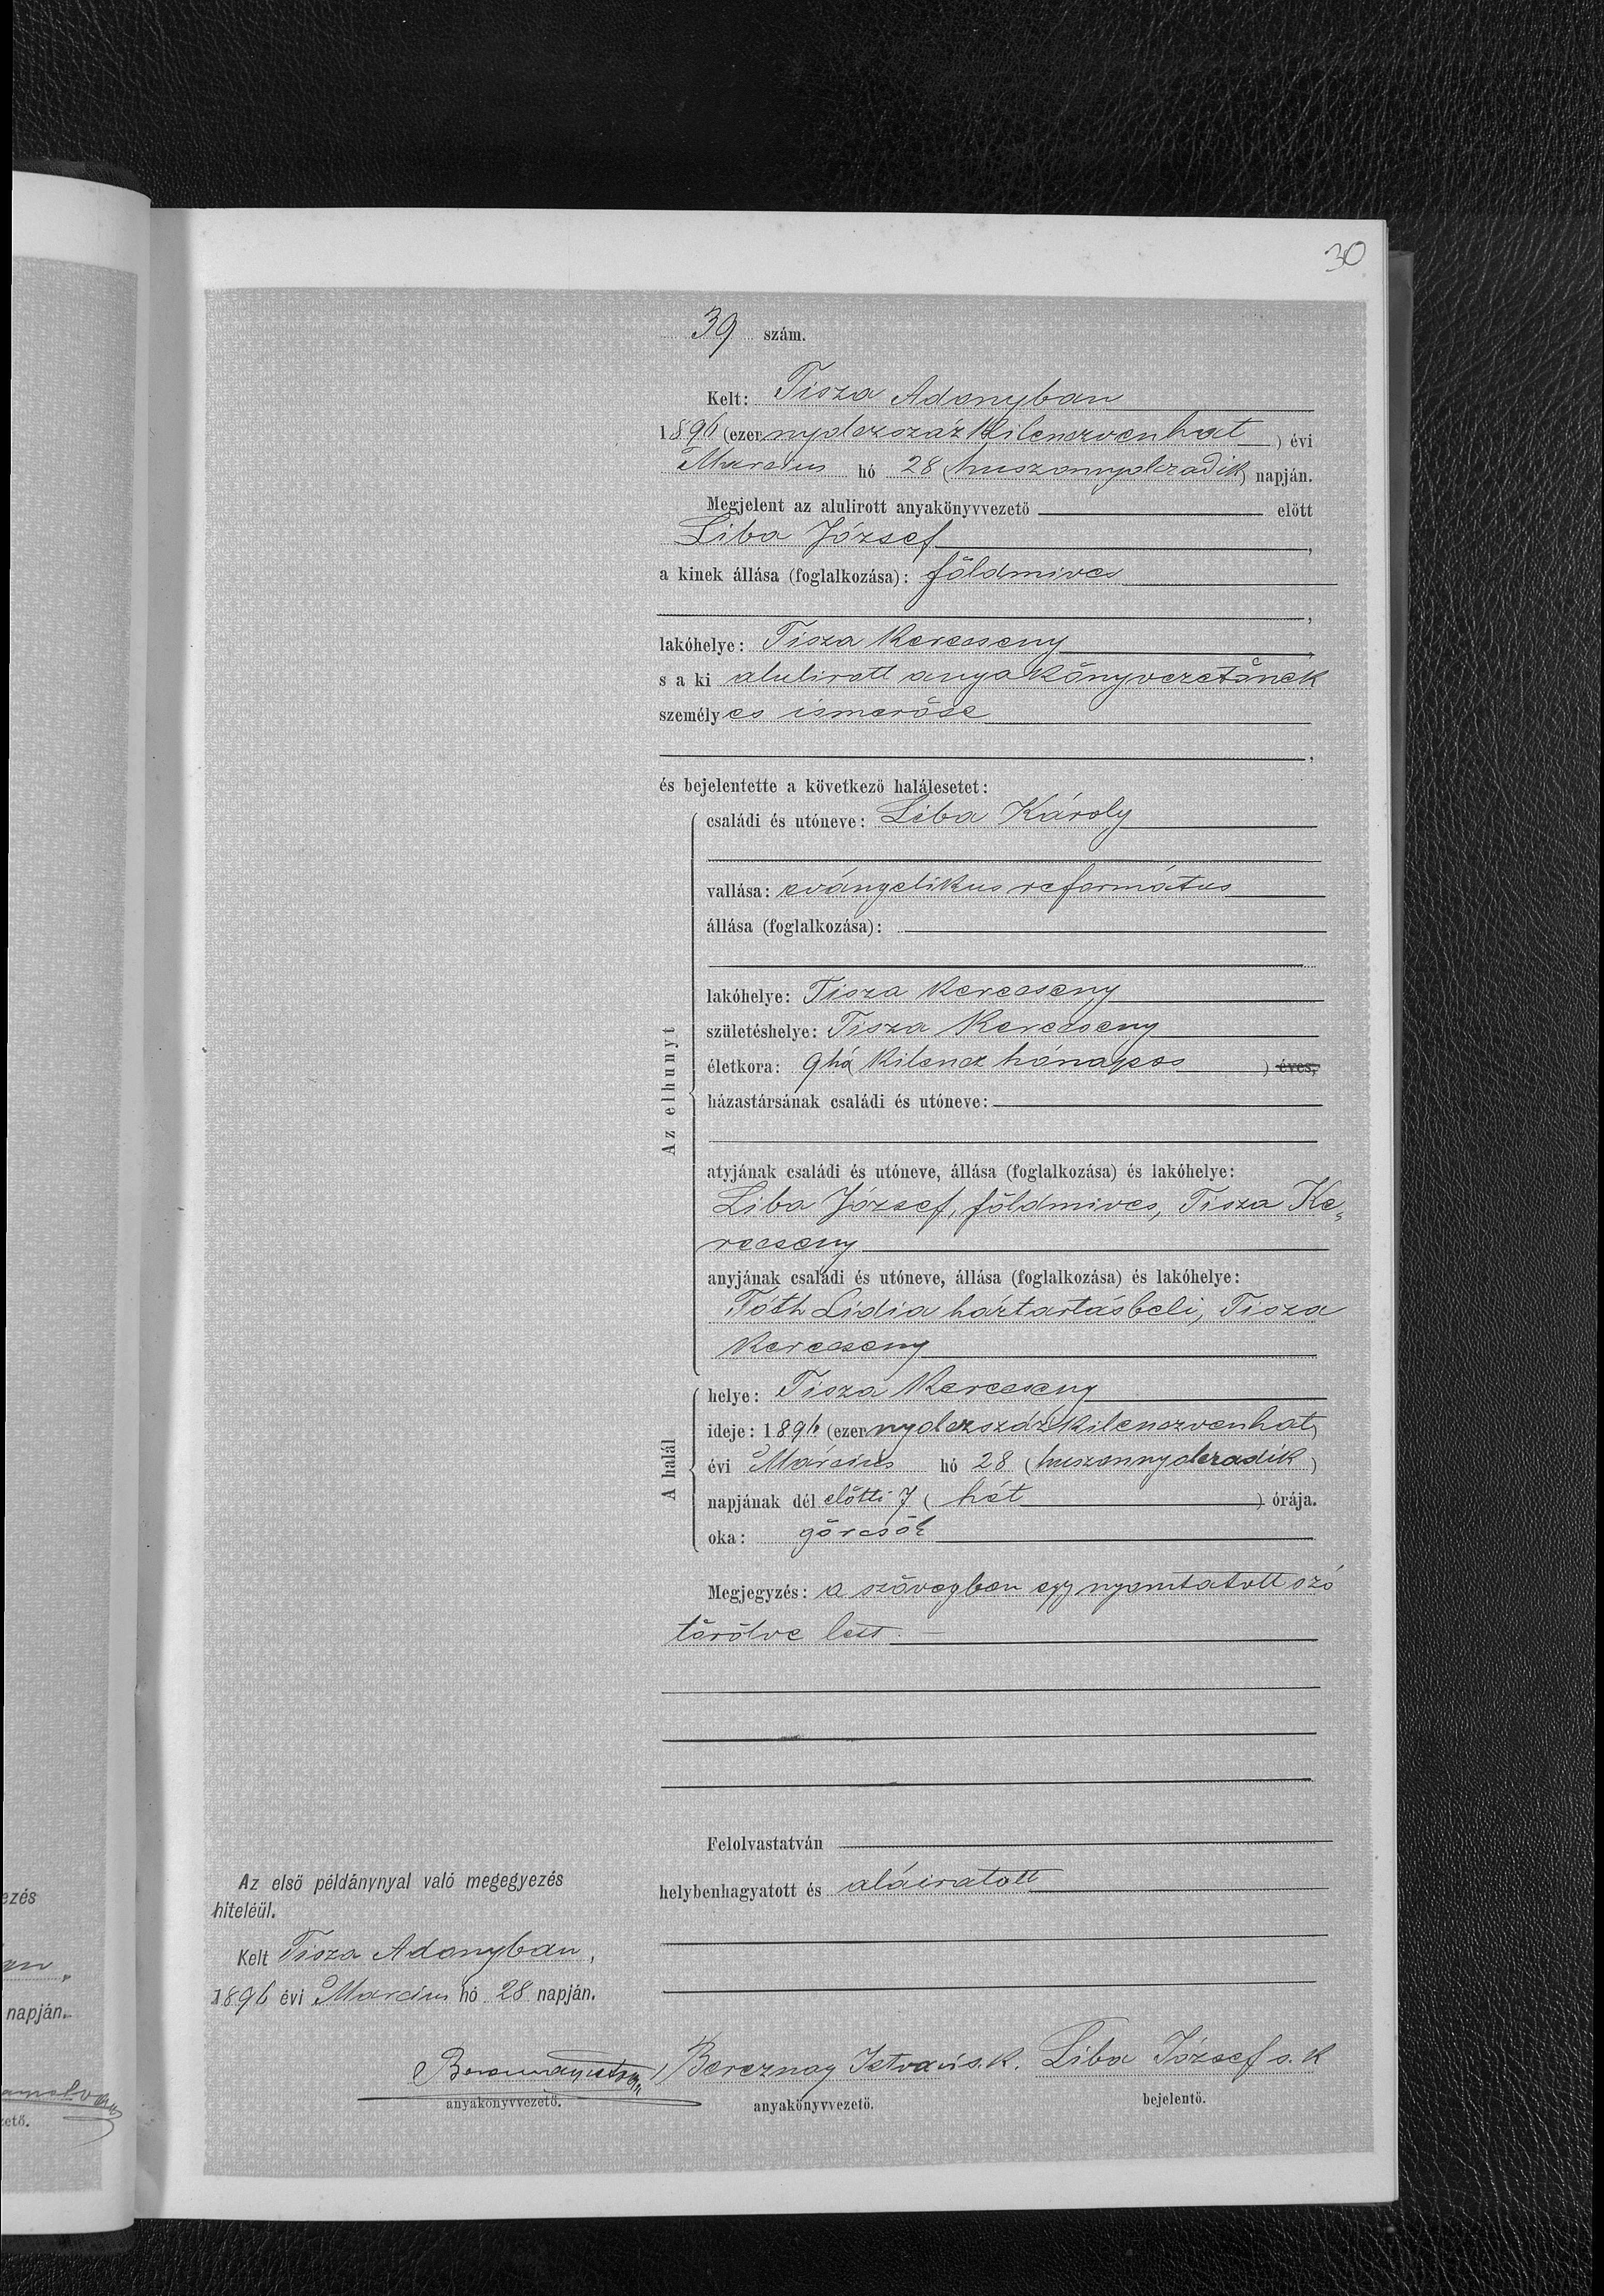 30
39 szám.
Kelt: Tisza Adonyban
1896 (ezer nyolczszáz kilenczvenhat) évi
Marcius hó 28 (huszonnyolczadik) napján.
Megjelent az alulirott anyakönyvvezető előtt
Liba József,
a kinek állása (foglalkozása): földmives
,
lakóhelye: Tisza Kerecseny,
s a ki alulirott anyakönyvezetőnek
személyes ismerőse
,
és bejelentette a következő halálesetet:
Az elhunyt
családi és utóneve: Liba Károly
vallása: evángelikus református
állása (foglalkozása):
lakóhelye: Tisza Kerecseny
születéshelye: Tisza Kerecseny
életkora: 9 hó (kilencz hónapos) éves,
házastársának családi és utóneve:
atyjának családi és utóneve, állása (foglalkozása) és lakóhelye:
Liba József, földmives, Tisza Ke„
recseny
anyjának családi és utóneve, állása (foglalkozása) és lakóhelye:
Tóth Lidia háztartásbeli, Tisza
Kerecseny
A halál
helye: Tisza Kerecseny
ideje: 1896 (ezer nyolczszáz kilenczvenhat)
évi Március hó 28 (huszonnyolczadik)
napjának dél előtti 7 (hét) órája.
oka: görcsök
Megjegyzés: a szövegben egy nyomtatott szó
törölve lett. —
Felolvastatván
helybenhagyatott és aláiratott
Az első példánynyal való megegyezés
hiteléül.
Kelt Tisza Adonyban,
1896 évi Marcius hó 28 napján.
Bereznay István s. k. Liba József s. k
anyakönyvvezető. anyakönyvvezető. bejelentő.
ezés
napján.
zető.